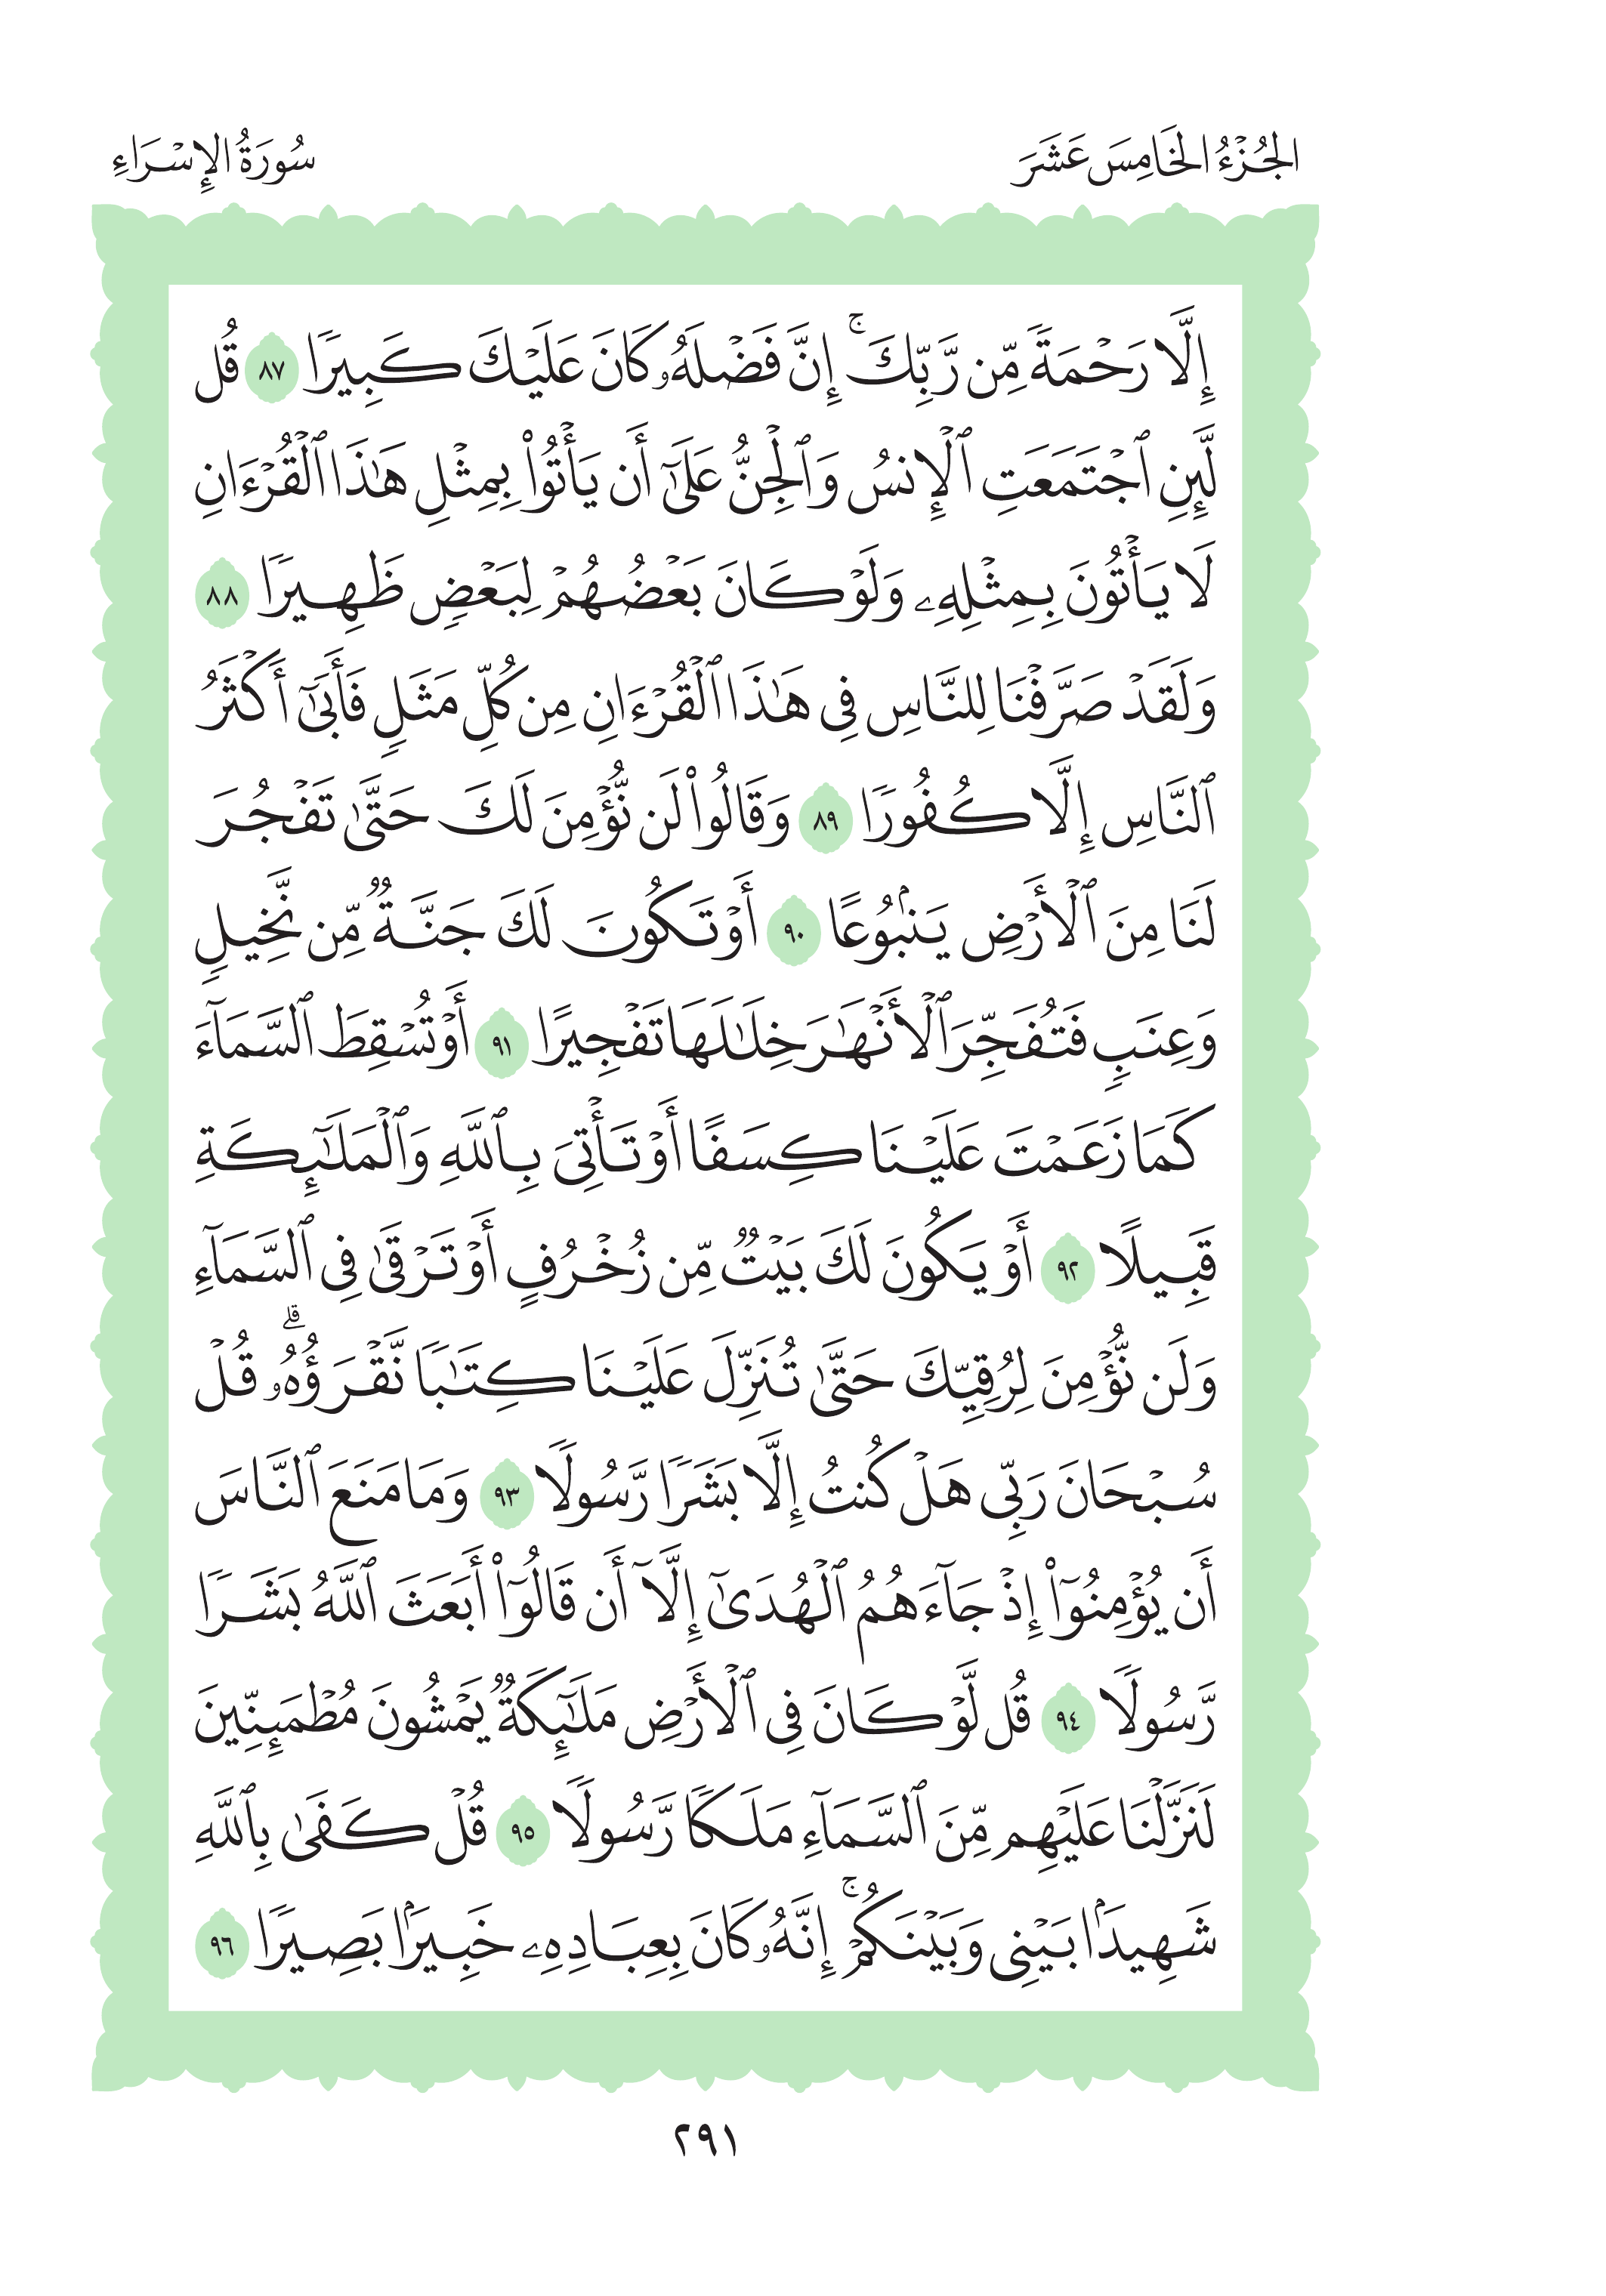 الجُزْءُ الخَامِسَ عَشَرَ
سُورَةُ الإِسْرَاءِ
إِلَّا رَحْمَةً مِّن رَّبِّكَ ۚ إِنَّ فَضْلَهُۥ كَانَ عَلَيْكَ كَبِيرًا ٨٧ قُل
لَّئِنِ ٱجْتَمَعَتِ ٱلْإِنسُ وَٱلْجِنُّ عَلَىٰٓ أَن يَأْتُوا۟ بِمِثْلِ هَـٰذَا ٱلْقُرْءَانِ
لَا يَأْتُونَ بِمِثْلِهِۦ وَلَوْ كَانَ بَعْضُهُمْ لِبَعْضٍ ظَهِيرًا ٨٨
وَلَقَدْ صَرَّفْنَا لِلنَّاسِ فِى هَـٰذَا ٱلْقُرْءَانِ مِن كُلِّ مَثَلٍ فَأَبَىٰٓ أَكْثَرُ
ٱلنَّاسِ إِلَّا كُفُورًا ٨٩ وَقَالُوا۟ لَن نُّؤْمِنَ لَكَ حَتَّىٰ تَفْجُرَ
لَنَا مِنَ ٱلْأَرْضِ يَنۢبُوعًا ٩٠ أَوْ تَكُونَ لَكَ جَنَّةٌ مِّن نَّخِيلٍ
وَعِنَبٍ فَتُفَجِّرَ ٱلْأَنْهَـٰرَ خِلَـٰلَهَا تَفْجِيرًا ٩١ أَوْ تُسْقِطَ ٱلسَّمَآءَ
كَمَا زَعَمْتَ عَلَيْنَا كِسَفًا أَوْ تَأْتِىَ بِٱللَّهِ وَٱلْمَلَـٰٓئِكَةِ
قَبِيلًا ٩٢ أَوْ يَكُونَ لَكَ بَيْتٌ مِّن زُخْرُفٍ أَوْ تَرْقَىٰ فِى ٱلسَّمَآءِ
وَلَن نُّؤْمِنَ لِرُقِيِّكَ حَتَّىٰ تُنَزِّلَ عَلَيْنَا كِتَـٰبًا نَّقْرَؤُهُۥ ۗ قُلْ
سُبْحَانَ رَبِّى هَلْ كُنتُ إِلَّا بَشَرًا رَّسُولًا ٩٣ وَمَا مَنَعَ ٱلنَّاسَ
أَن يُؤْمِنُوٓا۟ إِذْ جَآءَهُمُ ٱلْهُدَىٰٓ إِلَّآ أَن قَالُوٓا۟ أَبَعَثَ ٱللَّهُ بَشَرًا
رَّسُولًا ٩٤ قُل لَّوْ كَانَ فِى ٱلْأَرْضِ مَلَـٰٓئِكَةٌ يَمْشُونَ مُطْمَئِنِّينَ
لَنَزَّلْنَا عَلَيْهِم مِّنَ ٱلسَّمَآءِ مَلَكًا رَّسُولًا ٩٥ قُلْ كَفَىٰ بِٱللَّهِ
شَهِيدًۢا بَيْنِى وَبَيْنَكُمْ ۚ إِنَّهُۥ كَانَ بِعِبَادِهِۦ خَبِيرًۢا بَصِيرًا ٩٦
٢٩١